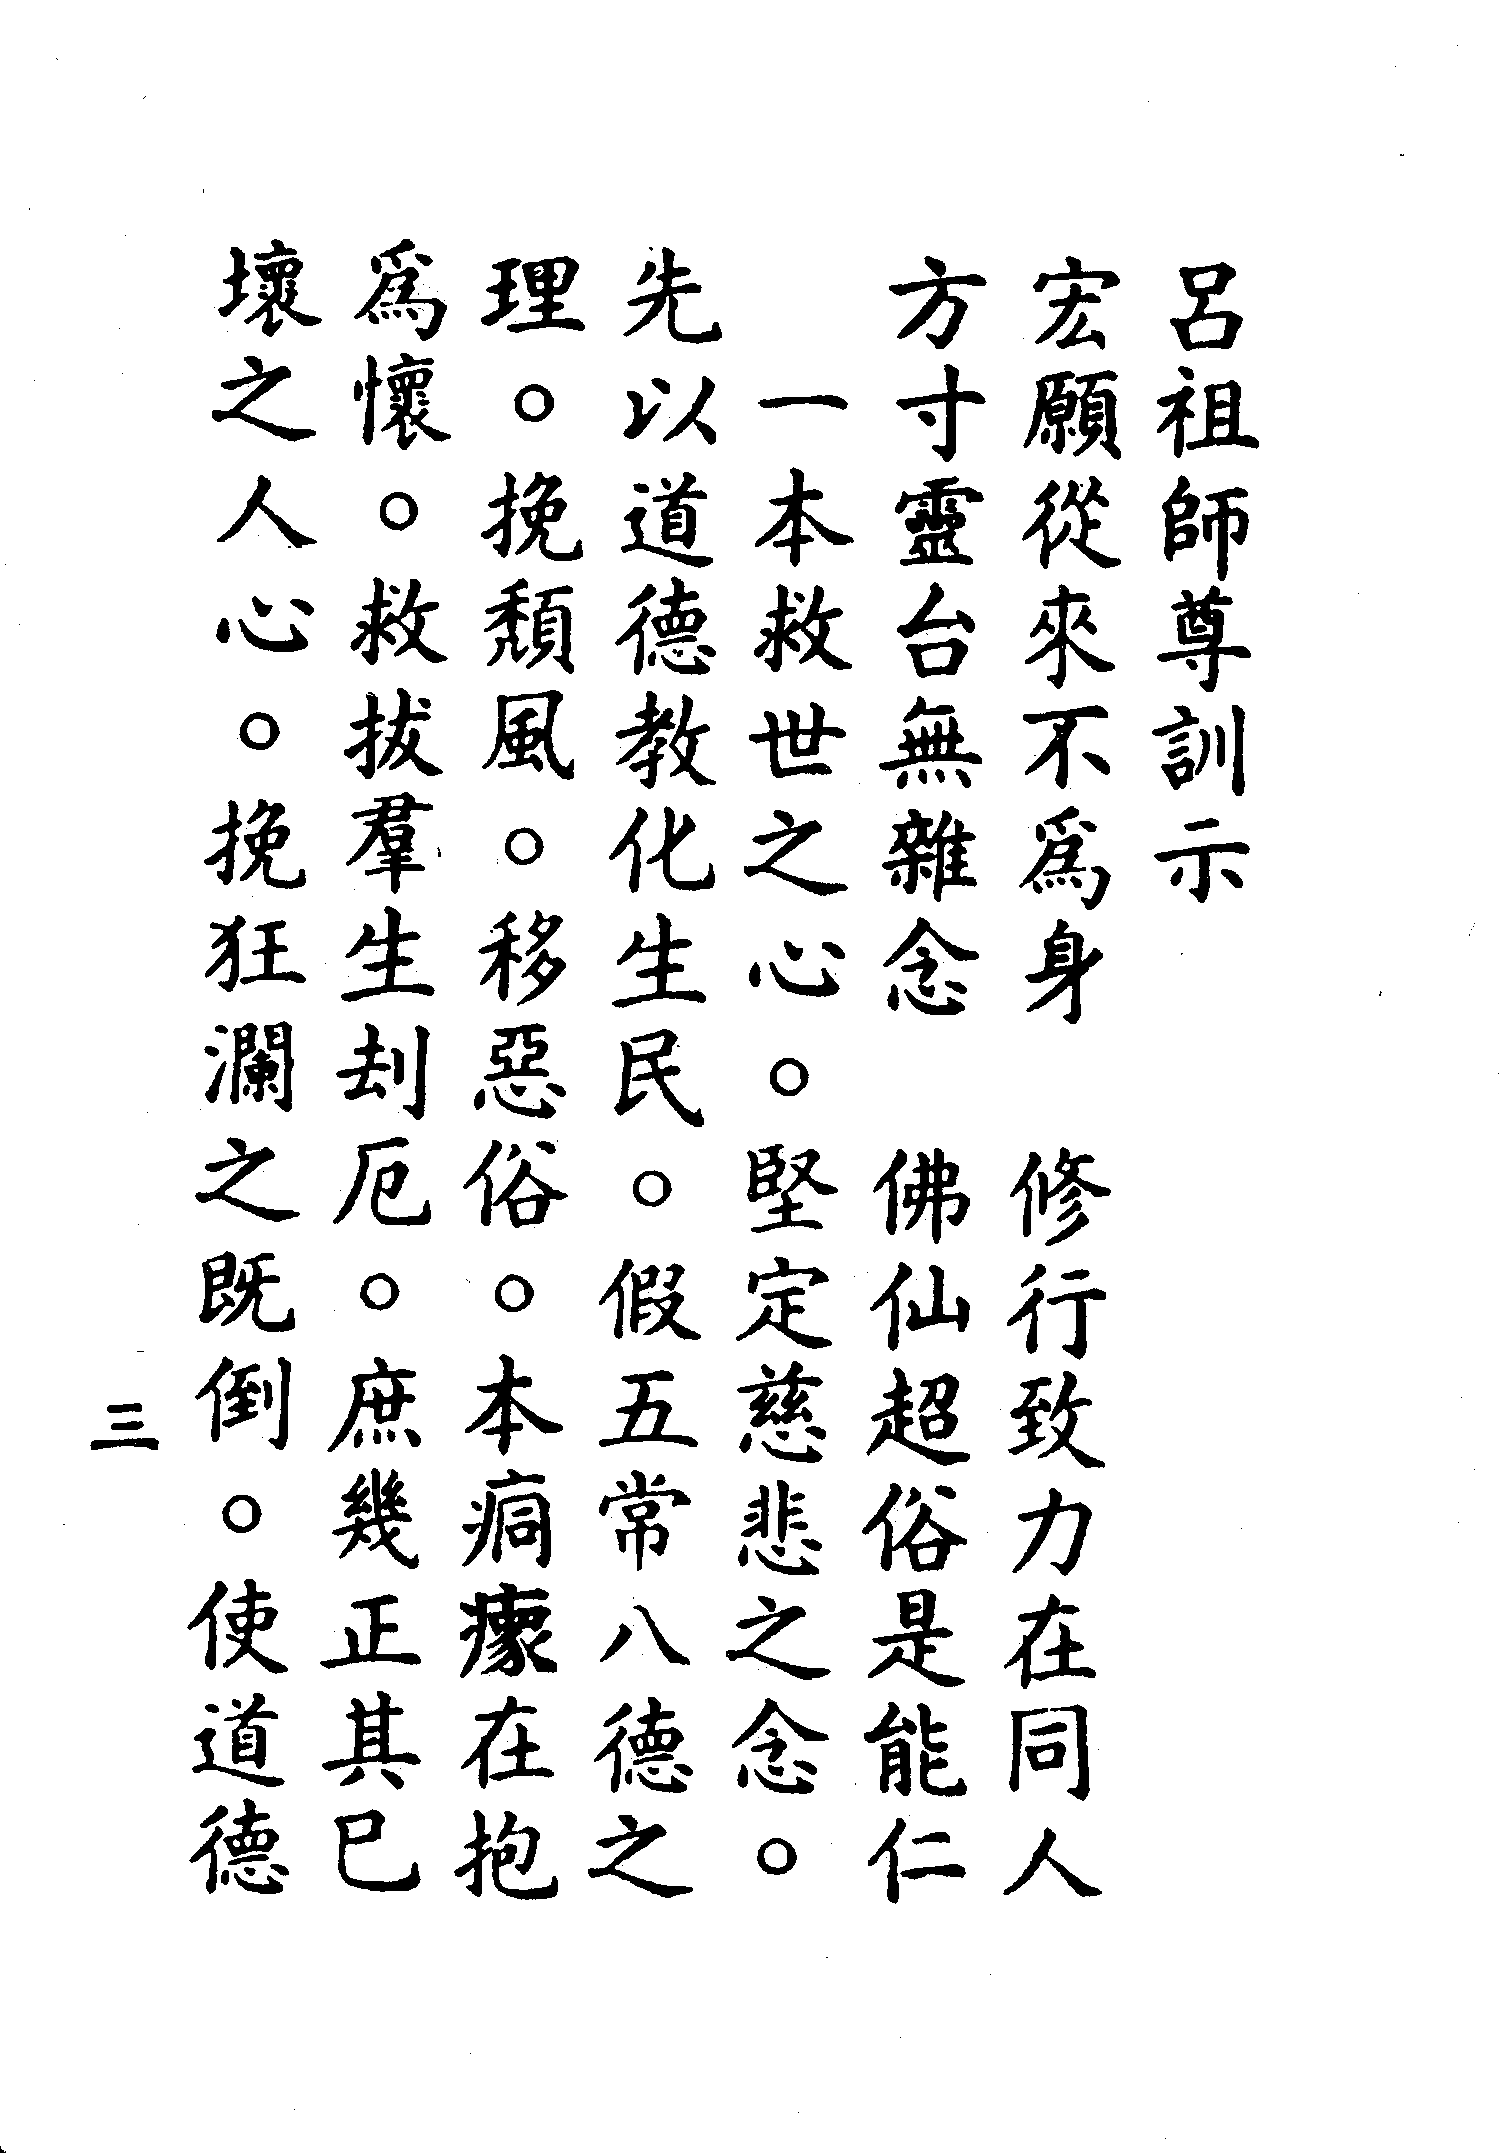 呂祖師尊訓示
宏願從來不爲身　修行致力在同人
方寸靈台無雜念　佛仙超俗是能仁
一本救世之心。堅定慈悲之念。
先以道德教化生民。假五常八德之
理。挽頹風。移惡俗。本痌瘝在抱
爲懷。救拔羣生刦厄。庶幾正其已
壞之人心。挽狂瀾之既倒。使道德
三